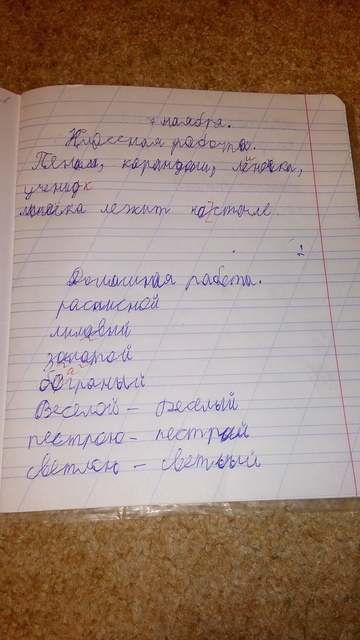 7 ноября.
Классная работа.
Пенал, карандаш, линейка,
ученик
линейка лежит на столе.
Домашная работа.
расписной
лиловый
золотой
багряный
Веселой – Веселый
пестрою – пестрый
светлой – светлый